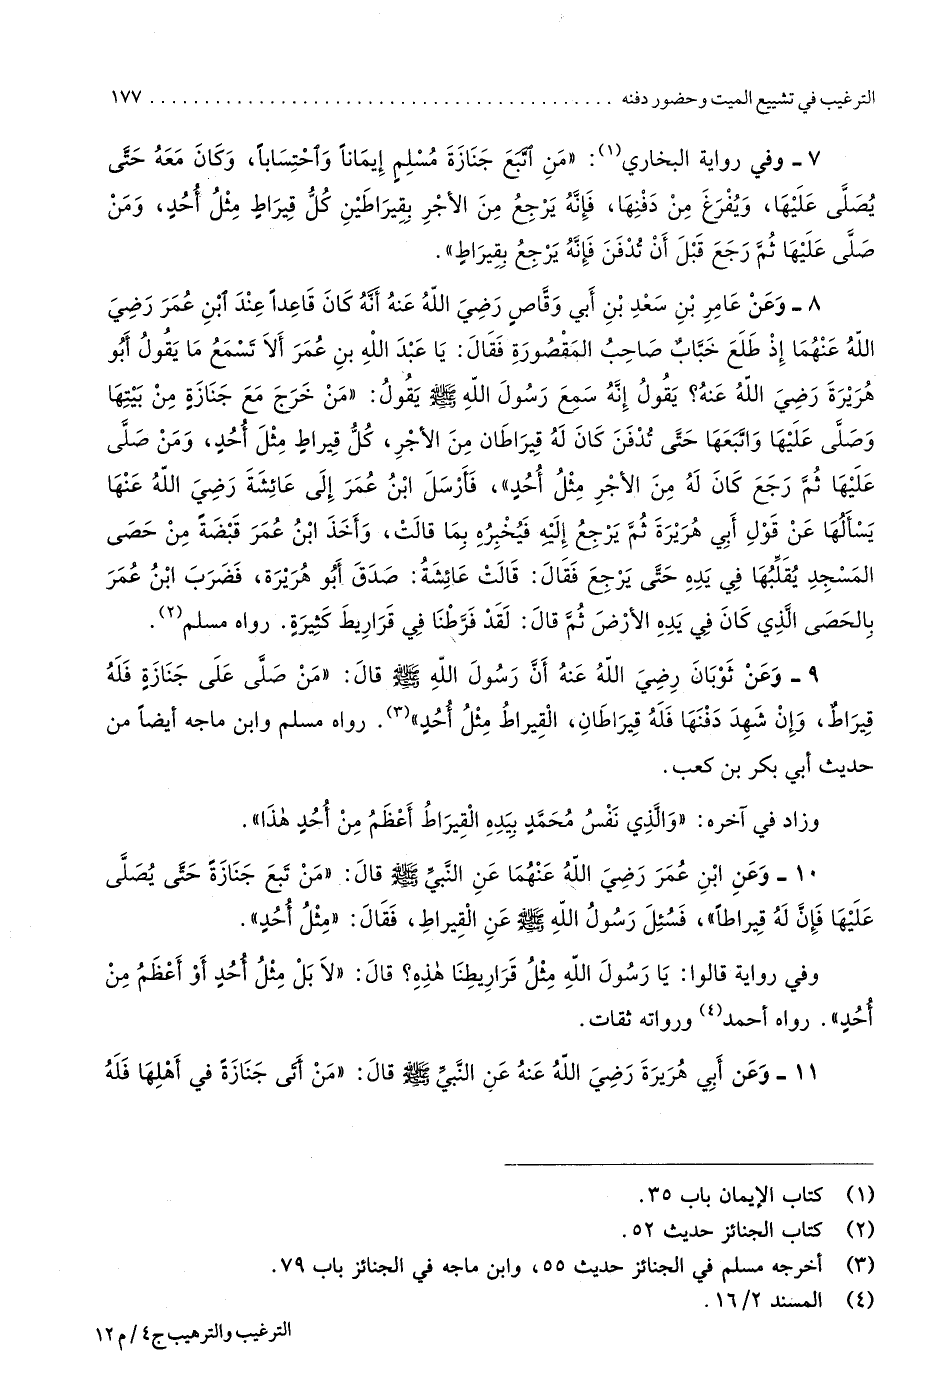 الترغيب في تشييع الميت وحضور دفنه .......................................... ١٧٧
٧ - وفي رواية البخاري(١): «مَنِ اتَّبَعَ جَنَازَةَ مُسْلِمٍ إِيمَاناً وَاحْتِسَاباً، وَكَانَ مَعَهُ حَتَّى
يُصَلَّى عَلَيْهَا، وَيُفْرَغَ مِنْ دَفْنِهَا، فَإِنَّهُ يَرْجِعُ مِنَ الأَجْرِ بِقِيرَاطَيْنِ كُلُّ قِيرَاطٍ مِثْلُ أُحُدٍ، وَمَنْ
صَلَّى عَلَيْهَا ثُمَّ رَجَعَ قَبْلَ أَنْ تُدْفَنَ فَإِنَّهُ يَرْجِعُ بِقِيرَاطٍ».
٨ - وَعَنْ عَامِرِ بْنِ سَعْدِ بْنِ أَبي وَقَّاصٍ رَضِيَ اللّهُ عَنهُ أَنَّهُ كَانَ قَاعِداً عِنْدَ ابْنِ عُمَرَ رَضِيَ
اللّهُ عَنْهُمَا إِذْ طَلَعَ خَبَّابٌ صَاحِبُ المَقْصُورَةِ فَقَالَ: يَا عَبْدَ اللهِ بنِ عُمَرَ أَلاَ تَسْمَعُ مَا يَقُولُ أَبُو
هُرَيْرَةَ رَضِيَ اللّهُ عَنهُ؟ يَقُولُ إِنَّهُ سَمِعَ رَسُولَ اللّهِ ﷺ يَقُولُ: «مَنْ خَرَجَ مَعَ جَنَازَةٍ مِنْ بَيْتِهَا
وَصَلَّى عَلَيْهَا وَاتَّبَعَهَا حَتَّى تُدْفَنَ كَانَ لَهُ قِيرَاطَان مِنَ الأَجْرِ، كُلُّ قِيراطٍ مِثْلَ أُحُدٍ، وَمَنْ صَلَّى
عَلَيْهَا ثُمَّ رَجَعَ كَانَ لَهُ مِنَ الأَجْرِ مِثْلُ أُحُدٍ»، فَأَرْسَلَ ابْنُ عُمَرَ إِلَى عَائِشَةَ رَضِيَ اللّهُ عَنْهَا
يَسْأَلُهَا عَنْ قَوْلِ أَبِي هُرَيْرَةَ ثُمَّ يَرْجِعُ إِلَيْهِ فَيُخْبِرُه بِمَا قالَتْ، وَأَخَذَ ابْنُ عُمَرَ قَبْضَةً مِنْ حَصَى
المَسْجِدِ يُقَلِّبُهَا فِي يَدِهِ حَتَّى يَرْجِعَ فَقَالَ: قَالَتْ عَائِشَةُ: صَدَقَ أَبُو هُرَيْرَة، فَضَرَبَ ابْنُ عُمَرَ
بِالحَصَى الَّذِي كَانَ فِي يَدِهِ الأَرْضَ ثُمَّ قالَ: لَقَدْ فَرَّطْنَا فِي قَرَارِيطَ كَثِيرَةٍ. رواه مسلم(٢).
٩ - وَعَنْ ثَوْبَانَ رضِيَ اللّهُ عَنهُ أَنَّ رَسُولَ اللّهِ ﷺ قالَ: «مَنْ صَلَّى عَلَى جَنَازَةٍ فَلَهُ
قِيرَاطٌ، وَإِنْ شَهِدَ دَفْنَهَا فَلَهُ قِيرَاطَان، القِيراطُ مِثْلُ أُحُدٍ»(٣). رواه مسلم وابن ماجه أيضاً من
حديث أبي بكر بن كعب.
وزاد في آخره: «وَالَّذِي نَفْسُ مُحَمَّدٍ بِيَدِهِ الْقِيرَاطُ أَعْظَمُ مِنْ أُحُدٍ هٰذَا».
١٠ - وَعَنِ ابْنِ عُمَرَ رَضِيَ اللّهُ عَنْهُمَا عَنِ النَّبيِّ ﷺ قالَ: «مَنْ تَبِعَ جَنَازَةً حَتَّى يُصَلَّى
عَلَيْهَا فَإِنَّ لَهُ قِيراطاً»، فَسُئِلَ رَسُولُ اللّهِ ﷺ عَنِ الْقِيراطِ، فَقَالَ: «مِثْلُ أُحُدٍ».
وفي رواية قالوا: يَا رَسُولَ اللّهِ مِثْلُ قَرَارِيطِنَا هٰذِهِ؟ قالَ: «لاَ بَلْ مِثْلُ أُحُدٍ أَوْ أَعْظَمُ مِنْ
أُحُدٍ». رواه أحمد(٤) ورواته ثقات.
١١ - وَعَن أَبِي هُرَيرَةَ رَضِيَ اللّهُ عَنهُ عَنِ النَّبيِّ ﷺ قالَ: «مَنْ أَتَى جَنَازَةً في أَهْلِهَا فَلَهُ
(١) كتاب الإيمان باب ٣٥.
(٢) كتاب الجنائز حديث ٥٢.
(٣) أخرجه مسلم في الجنائز حديث ٥٥، وابن ماجه في الجنائز باب ٧٩.
(٤) المسند ١٦/٢.
الترغيب والترهيب ج٤/ م ١٢